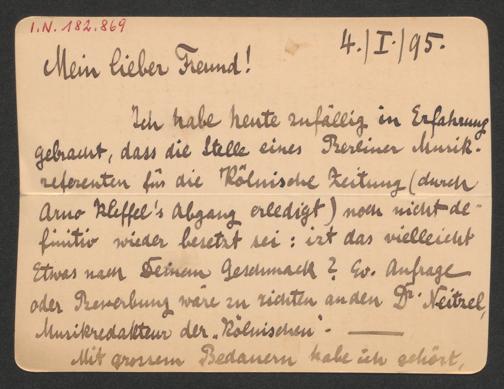 I.N. 182.869
4./I./95.
Mein lieber Freund!
Ich habe heute zufällig in Erfahrung
gebracht, dass die Stelle eines Berliner Musik-
referenten für die Kölnische Zeitung (durch
Arno Kleffel's Abgang erledigt) noch nicht de-
finitiv wieder besetzt sei: ist das vielleicht
Etwas nach Deinem Geschmack? Ev. Anfrage
oder Bewerbung wäre zu richten an den Dr. Neitzel,
Musikredakteur der „Kölnischen". —
Mit grossem Bedauern habe ich gehört,